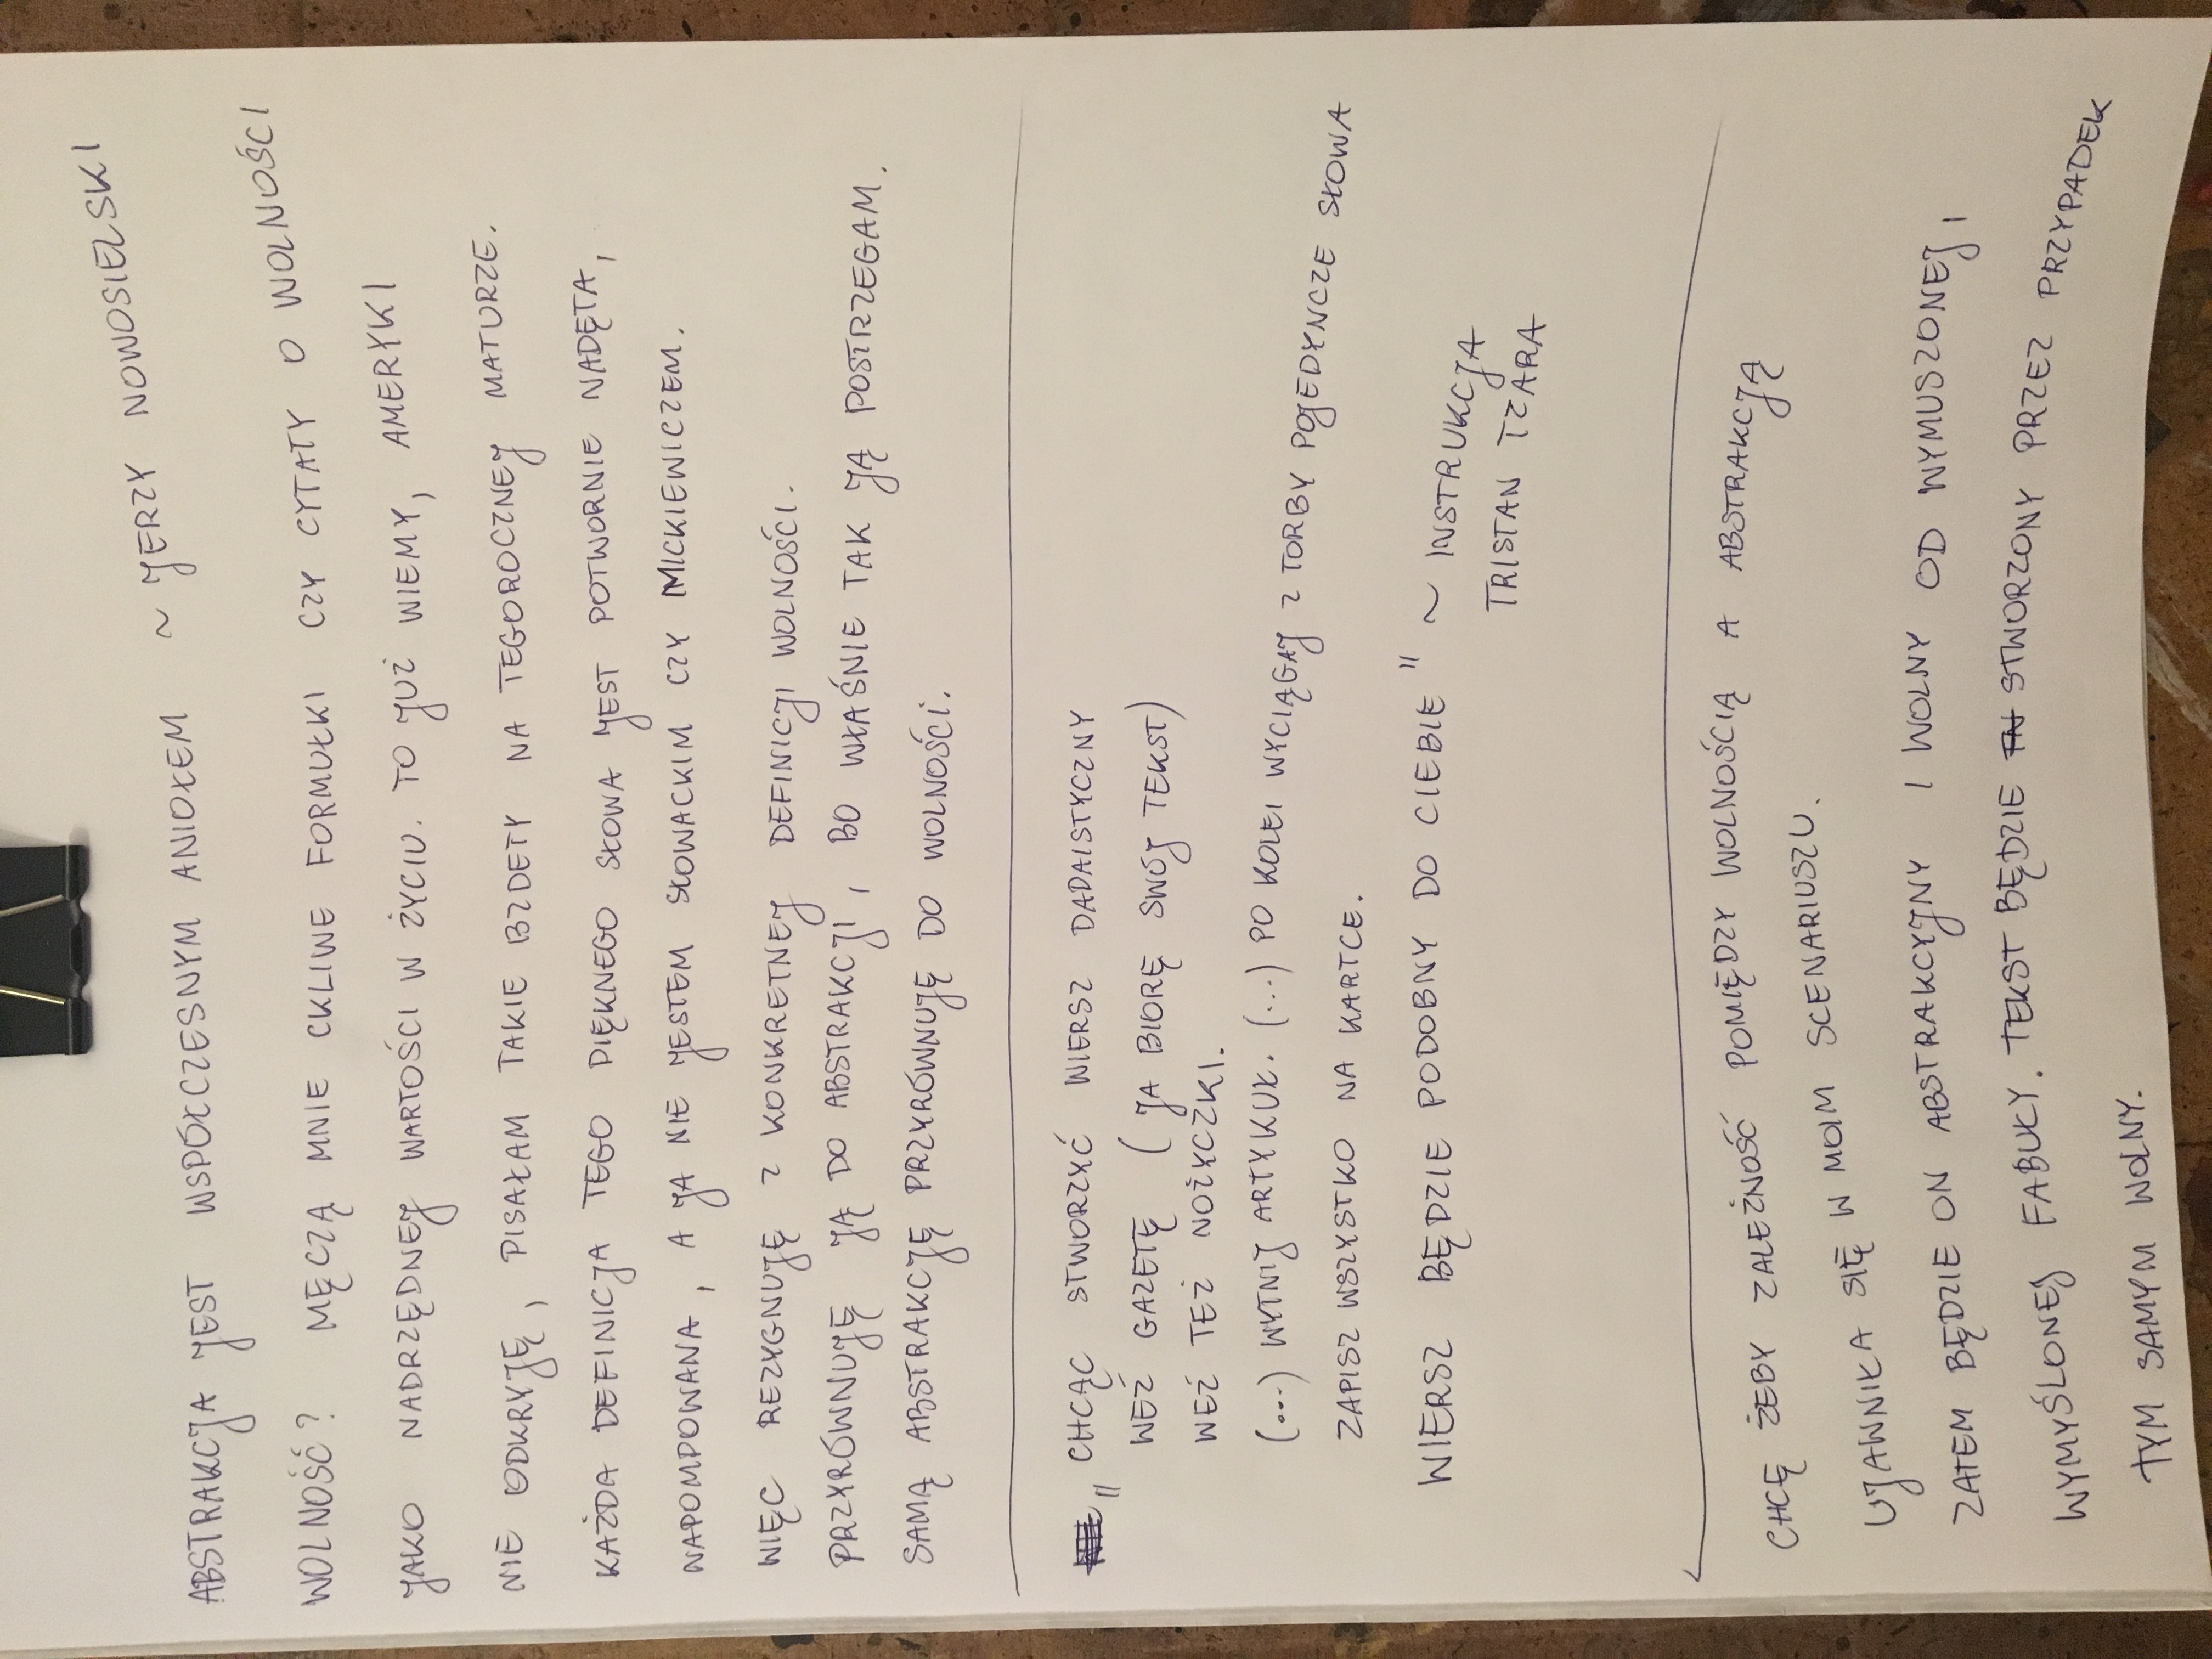 ABSTRAKCJA JEST WSPÓŁCZESNYM ANIOŁEM ~ JERZY NOWOSIELSKI
WOLNOŚĆ? MĘCZĄ MNIE CKLIWE FORMUŁKI CZY CYTATY O WOLNOŚCI
JAKO NADRZĘDNEJ WARTOŚCI W ŻYCIU. TO JUŻ WIEMY, AMERYKI
NIE ODKRYJĘ, PISAŁAM TAKIE BZDETY NA TEGOROCZNEJ MATURZE.
KAŻDA DEFINICJA TEGO PIĘKNEGO SŁOWA JEST POTWORNIE NADĘTA,
NAPOMPOWANA, A JA NIE JESTEM SŁOWACKIM CZY MICKIEWICZEM.
WIĘC REZYGNUJĘ Z KONKRETNEJ DEFINICJI WOLNOŚCI.
PRZYRÓWNUJĘ JĄ DO ABSTRAKCJI, BO WŁAŚNIE TAK JĄ POSTRZEGAM.
SAMĄ ABSTRAKCJĘ PRZYRÓWNUJĘ DO WOLNOŚCI.
„CHCĄC STWORZYĆ WIERSZ DADAISTYCZNY
WEŹ GAZETĘ (JA BIORĘ SWÓJ TEKST)
WEŹ TEŻ NOŻYCZKI.
(...) WYTNIJ ARTYKUŁ. (...) PO KOLEI WYCIĄGAJ Z TORBY POJEDYNCZE SŁOWA
ZAPISZ WSZYSTKO NA KARTCE.
WIERSZ BĘDZIE PODOBNY DO CIEBIE" ~ INSTRUKCJA
TRISTAN TZARA
CHCĘ ŻEBY ZALEŻNOŚĆ POMIĘDZY WOLNOŚCIĄ A ABSTRAKCJĄ
UJAWNIŁA SIĘ W MOIM SCENARIUSZU.
ZATEM BĘDZIE ON ABSTRAKCYJNY I WOLNY OD WYMUSZONEJ,
WYMYŚLONEJ FABUŁY. TEKST BĘDZIE STWORZONY PRZEZ PRZYPADEK
TYM SAMYM WOLNY.